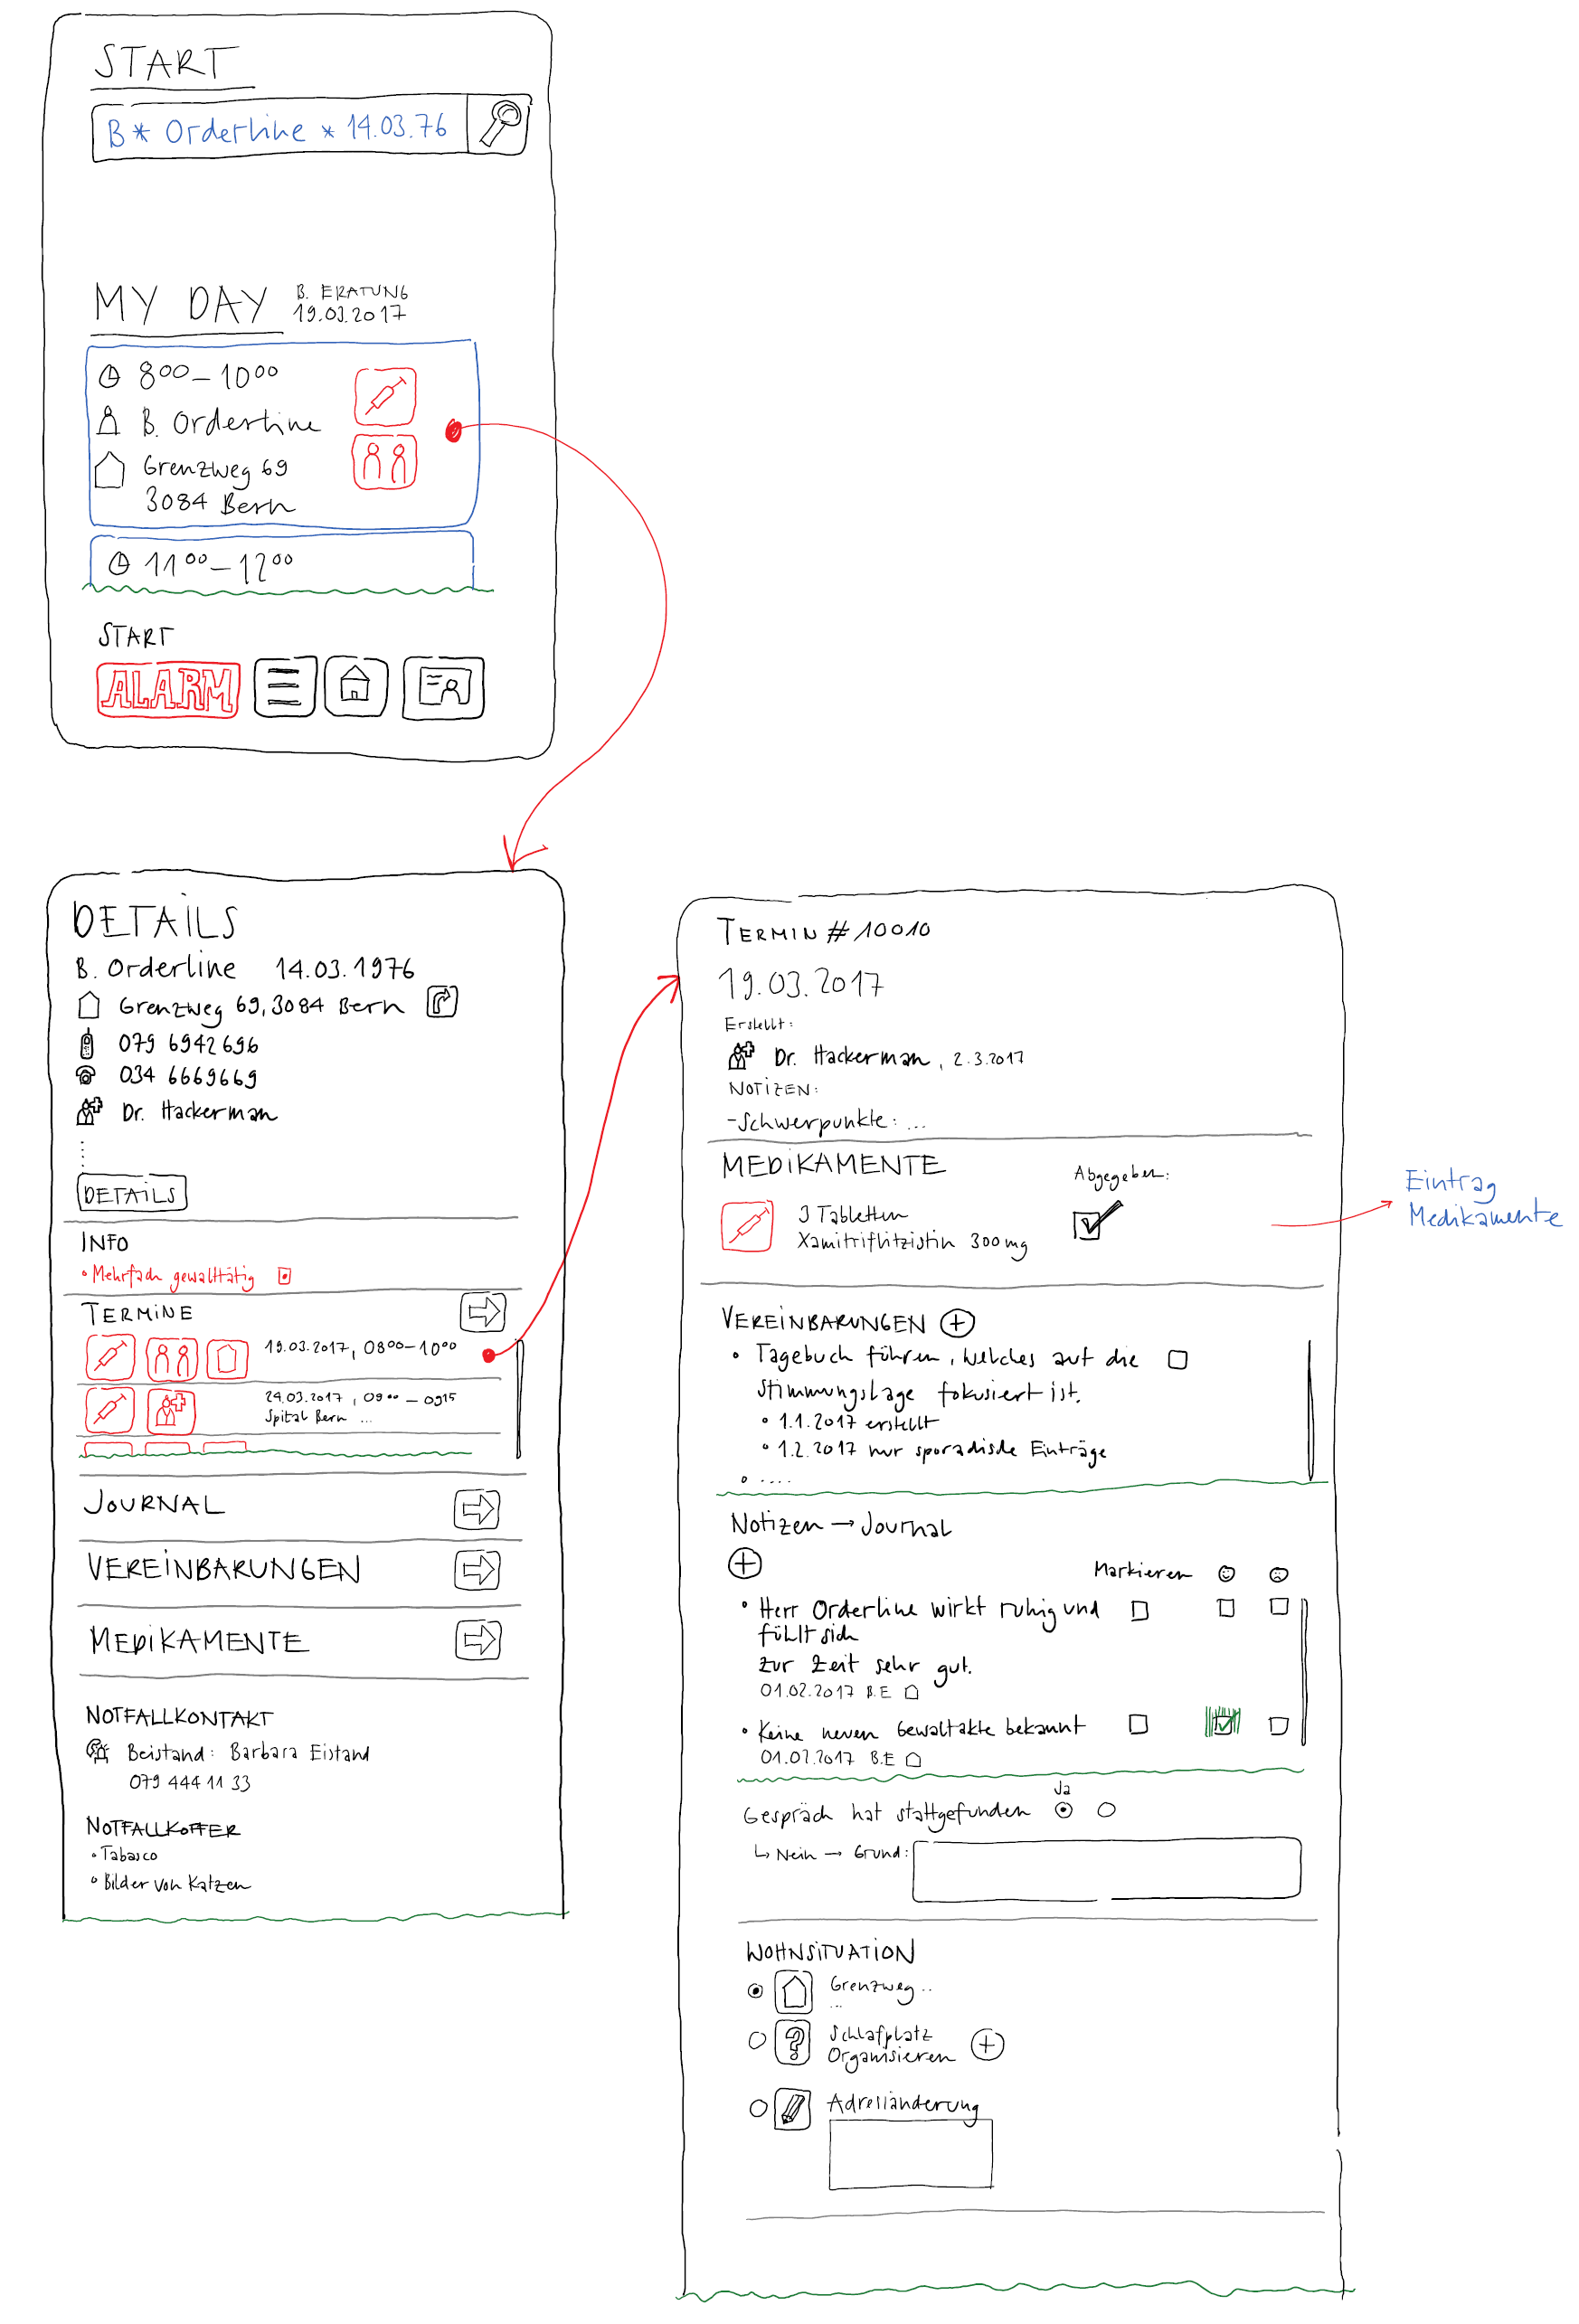 START
B* Orderline * 14.03.76
MY DAY
B. ERATUNG
19.03.2017
8⁰⁰–10⁰⁰
B. Orderline
Grenzweg 69
3084 Bern
11⁰⁰–12⁰⁰
START
ALARM
DETAILS
B. Orderline 14.03.1976
Grenzweg 69, 3084 Bern
079 6942696
034 6669669
Dr. Hackerman
DETAILS
INFO
• Mehrfach gewalttätig
TERMINE
19.03.2017, 08⁰⁰–10⁰⁰
24.03.2017, 09⁰⁰ – 09¹⁵
Spital Bern ...
JOURNAL
VEREINBARUNGEN
MEDIKAMENTE
NOTFALLKONTAKT
Beistand: Barbara Eistand
079 444 11 33
NOTFALLKOFFER
• Tabasco
• Bilder von Katzen
TERMIN # 10010
19.03.2017
Erstellt:
Dr. Hackerman, 2.3.2017
NOTIZEN:
- Schwerpunkte: ...
MEDIKAMENTE
Abgegeben:
3 Tabletten
Xamitriflitzistin 300mg
Eintrag
Medikamente
VEREINBARUNGEN +
• Tagebuch führen, welches auf die
Stimmungslage fokusiert ist.
• 1.1.2017 erstellt
• 1.2.2017 nur sporadische Einträge
• ....
Notizen → Journal
+
Markieren
• Herr Orderline wirkt ruhig und
fühlt sich
zur Zeit sehr gut.
01.02.2017 B.E
• Keine neuen Gewaltakte bekannt
01.02.2017 B.E
Ja
Gespräch hat stattgefunden
↳ Nein → Grund:
WOHNSITUATION
Grenzweg ..
...
?
Schlafplatz
Organisieren +
Adressänderung